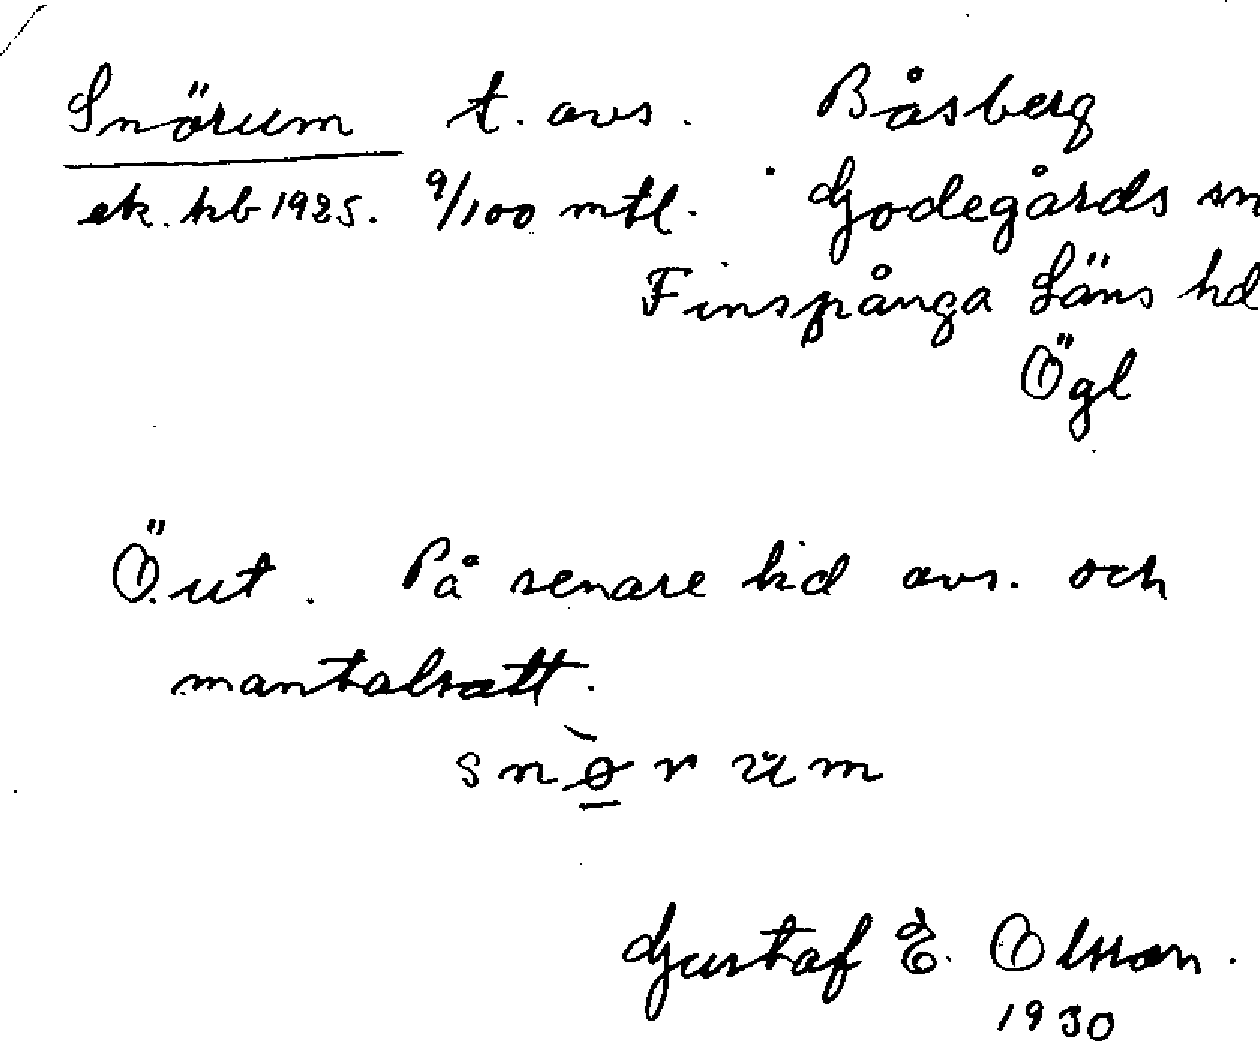 Snörum t. avs. Båsberg
ek. kb 1925. 9/100 mtl. Godegårds sn
Finspånga Läns hd
Ögl
Ö. ut. På senare tid avs. och
mantalsatt.
snø̀rum
Gustaf E. Olsson.
1930